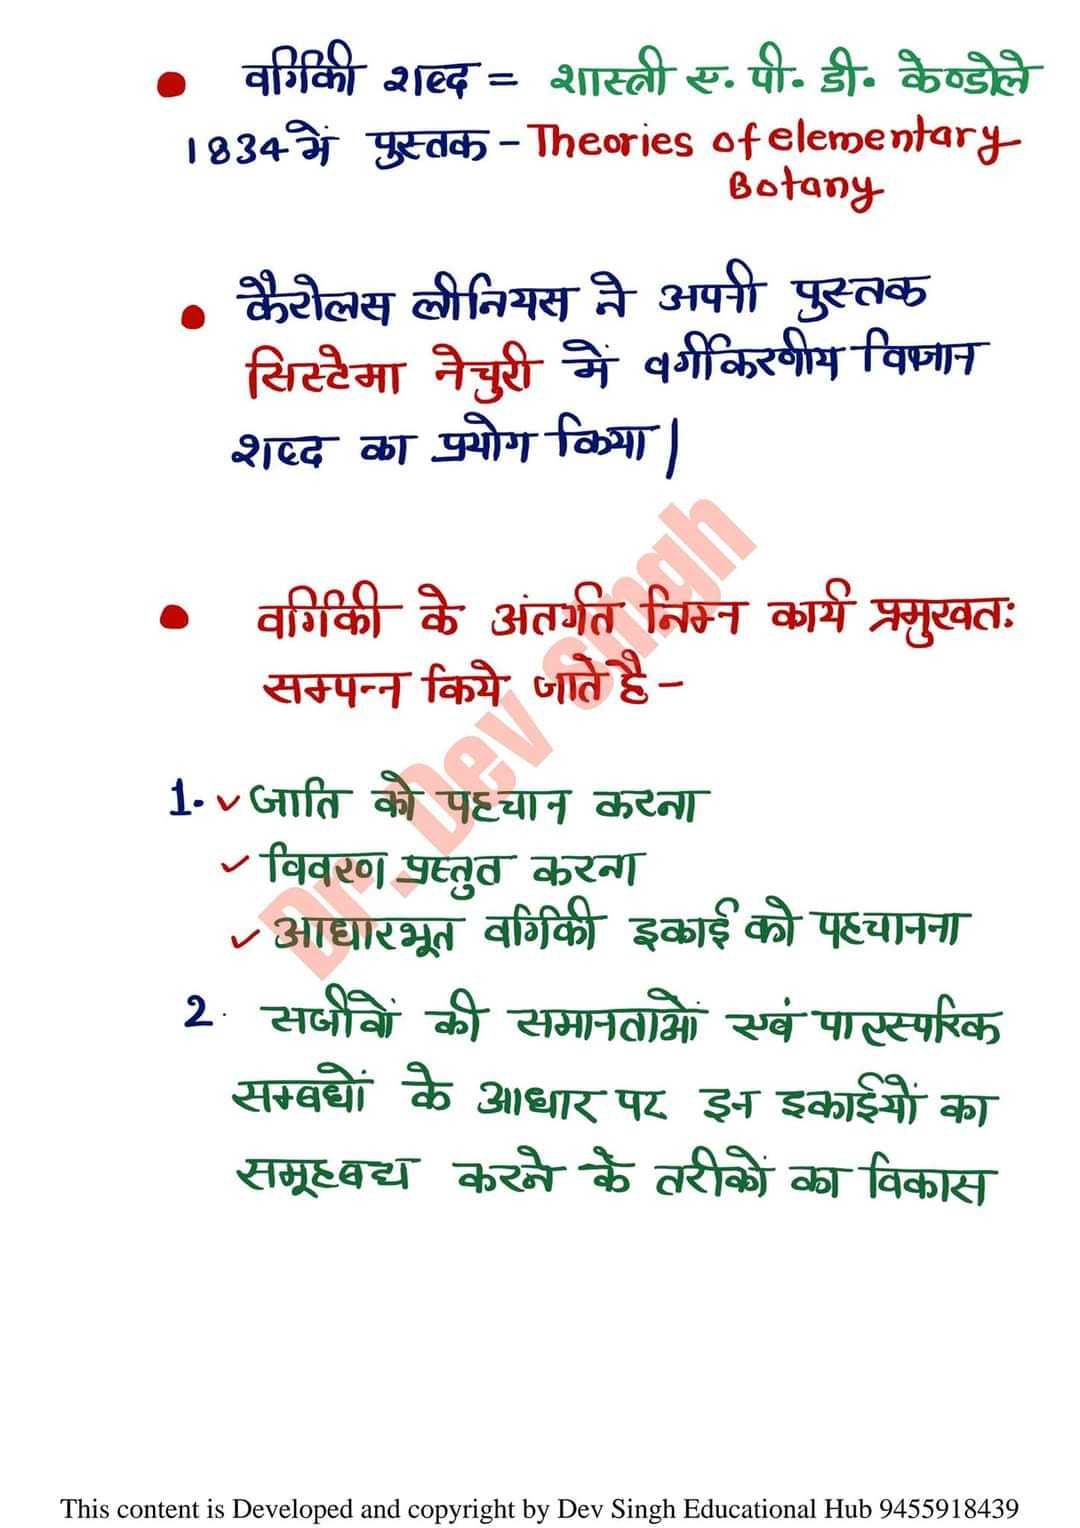 • वर्गिकी शब्द = शास्त्री ए. पी. डी. केण्डोले
1834 में पुस्तक - Theories of elementary
Botany
• कैरोलस लीनियस ने अपनी पुस्तक
सिस्टेमा नेचुरी में वर्गीकरणीय विज्ञान
शब्द का प्रयोग किया |
• वर्गिकी के अंतर्गत निम्न कार्य प्रमुखतः
सम्पन्न किये जाते है -
1. ✓ जाति को पहचान करना
✓ विवरण प्रस्तुत करना
✓ आधारभूत वर्गिकी इकाई को पहचानना
2. सजीवों की समानताओं एवं पारस्परिक
सम्बधों के आधार पर इन इकाईयों का
समूहबद्य करने के तरीकों का विकास
Dr. Dev singh
This content is Developed and copyright by Dev Singh Educational Hub 9455918439